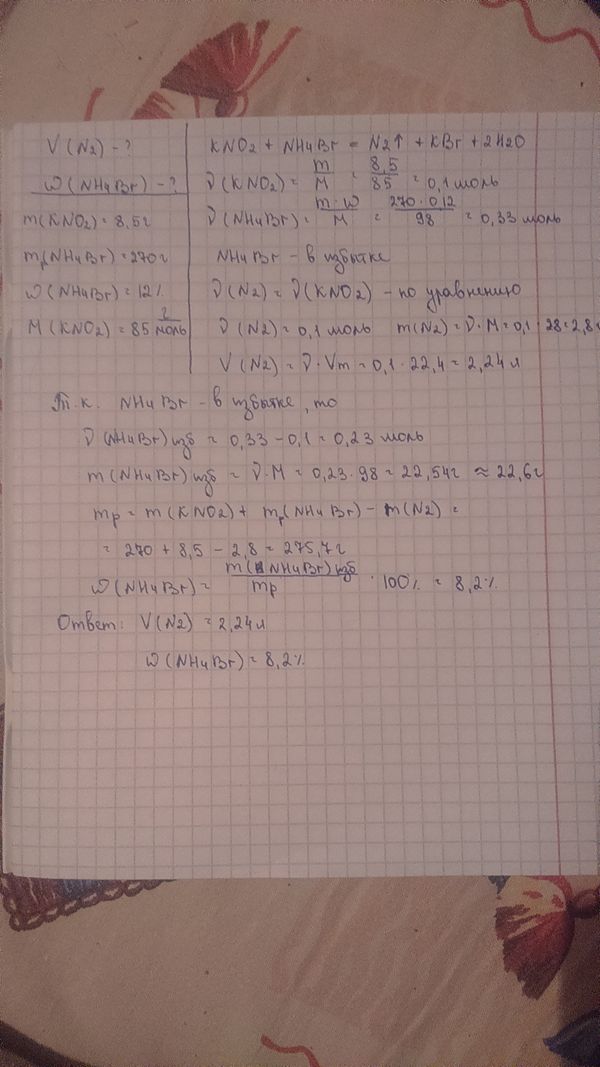 V(N2) - ?
ω(NH4Br) - ?
m(KNO2) = 8,5г
mр(NH4Br) = 270г
ω(NH4Br) = 12%
M(KNO2) = 85 г/моль
KNO2 + NH4Br = N2↑ + KBr + 2H2O
ν(KNO2) = m/M = 8,5/85 = 0,1 моль
ν(NH4Br) = m·ω/M = 270·0,12/98 = 0,33 моль
NH4Br - в избытке
ν(N2) = ν(KNO2) - по уравнению
ν(N2) = 0,1 моль m(N2) = ν·M = 0,1·28 = 2,8г
V(N2) = ν·Vm = 0,1·22,4 = 2,24 л
Т.к. NH4Br - в избытке, то
ν(NH4Br)изб = 0,33 - 0,1 = 0,23 моль
m(NH4Br)изб = ν·M = 0,23·98 = 22,54г ≈ 22,6г
mр = m(KNO2) + mр(NH4Br) - m(N2) =
= 270 + 8,5 - 2,8 = 275,7г
ω(NH4Br) = m(NH4Br)изб/mр · 100% = 8,2%
Ответ: V(N2) = 2,24л
ω(NH4Br) = 8,2%